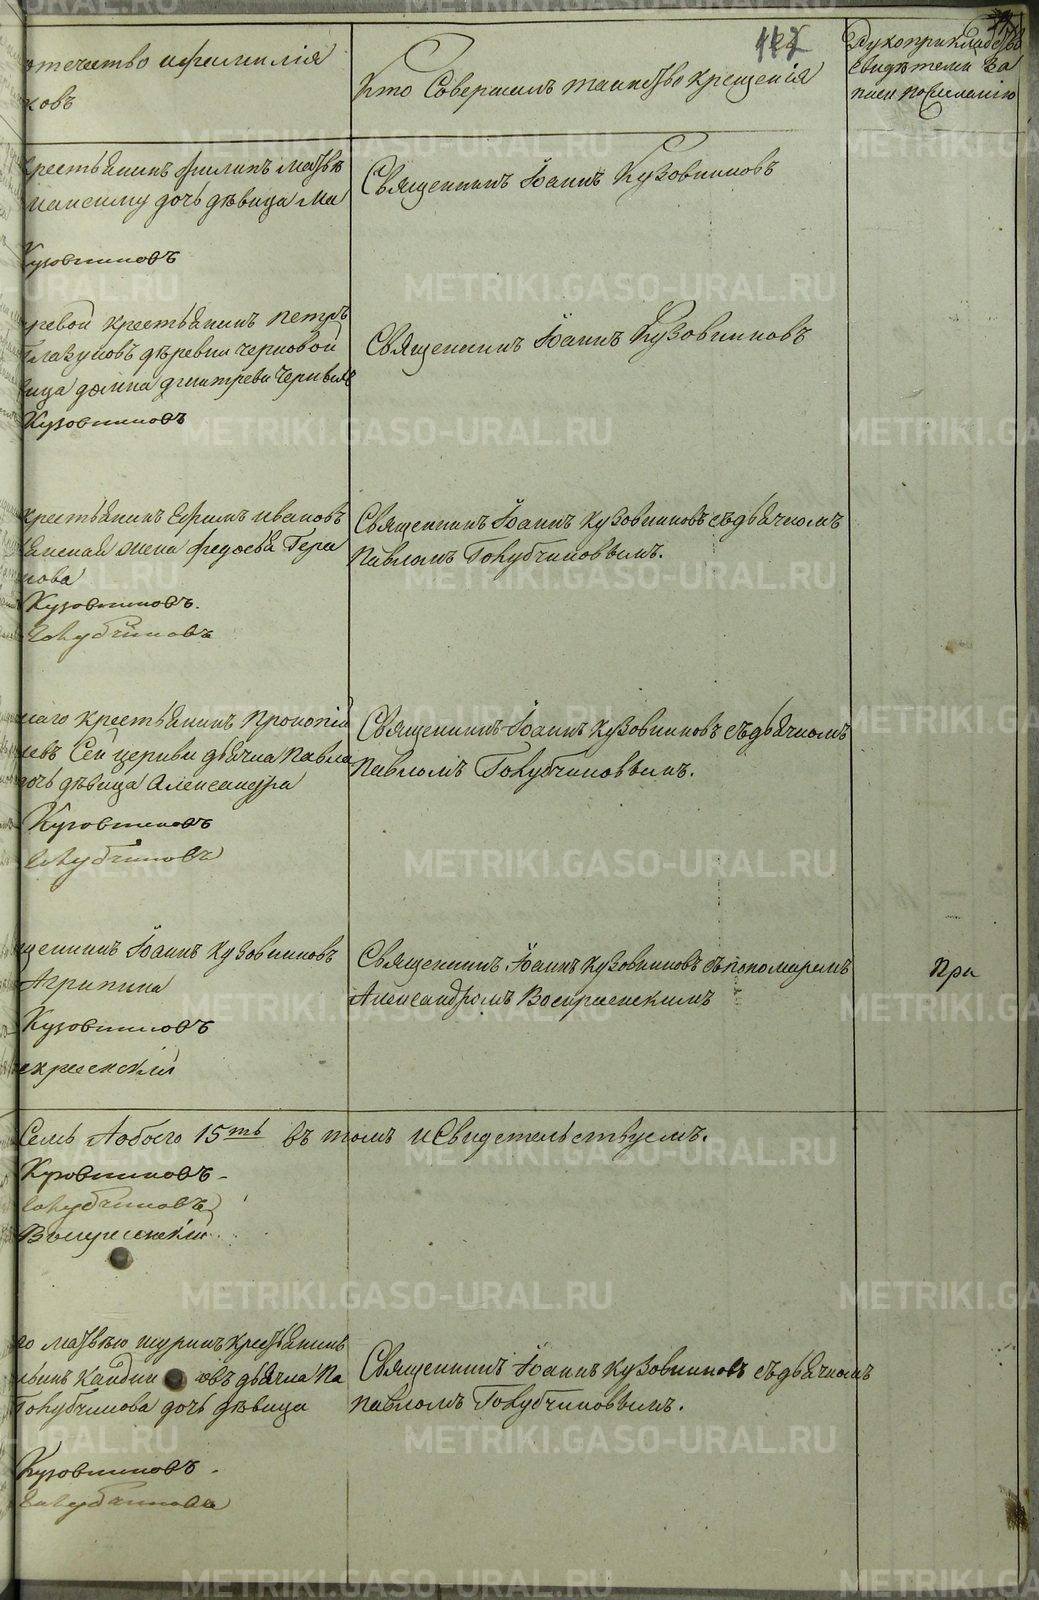 отечество и фамилія
ковъ
Кто Совершилъ таинство крещенія
Рукоприкладство
свидѣтелей За
писи по желанію
крестьянинъ Филипъ Матвѣ
дочь дѣвица Ма
Кузовниковъ
Священникъ Іоаннъ Кузовниковъ
крестьянинъ Петръ
Глазуновъ деревни Черновой
Кузовниковъ
Священникъ Іоаннъ Кузовниковъ
крестьянинъ Ефимъ Ивановъ
жена Федосья Гера
мова
Кузовниковъ.
Голубчиковъ
Священникъ Іоаннъ Кузовниковъ съ дьячкомъ
Павломъ Голубчиковымъ.
крестьянинъ Прокопій
Сей церкви дьячка Павла
дочь дѣвица Александра
Кузовниковъ
Голубчиковъ
Священникъ Іоаннъ Кузовниковъ съ дьячкомъ
Павломъ Голубчиковымъ.
щенникъ Іоаннъ Кузовниковъ
Агрипина
Кузовниковъ
скресенскій
Священникъ Іоаннъ Кузовниковъ съ пономаремъ
Александромъ Воскресенскимъ
При
Семь Аобоего 15ть въ томъ и Свидетельствуемъ.
Кузовниковъ
Голубчиковъ
Воскресенскій
Матвѣю шуринъ крестьянинъ
дьячка Па
Голубчикова дочь дѣвица
Кузовниковъ
Голубчиковъ
Священникъ Іоаннъ Кузовниковъ съ дьячкомъ
Павломъ Голубчиковымъ.
METRIKI.GASO-URAL.RU